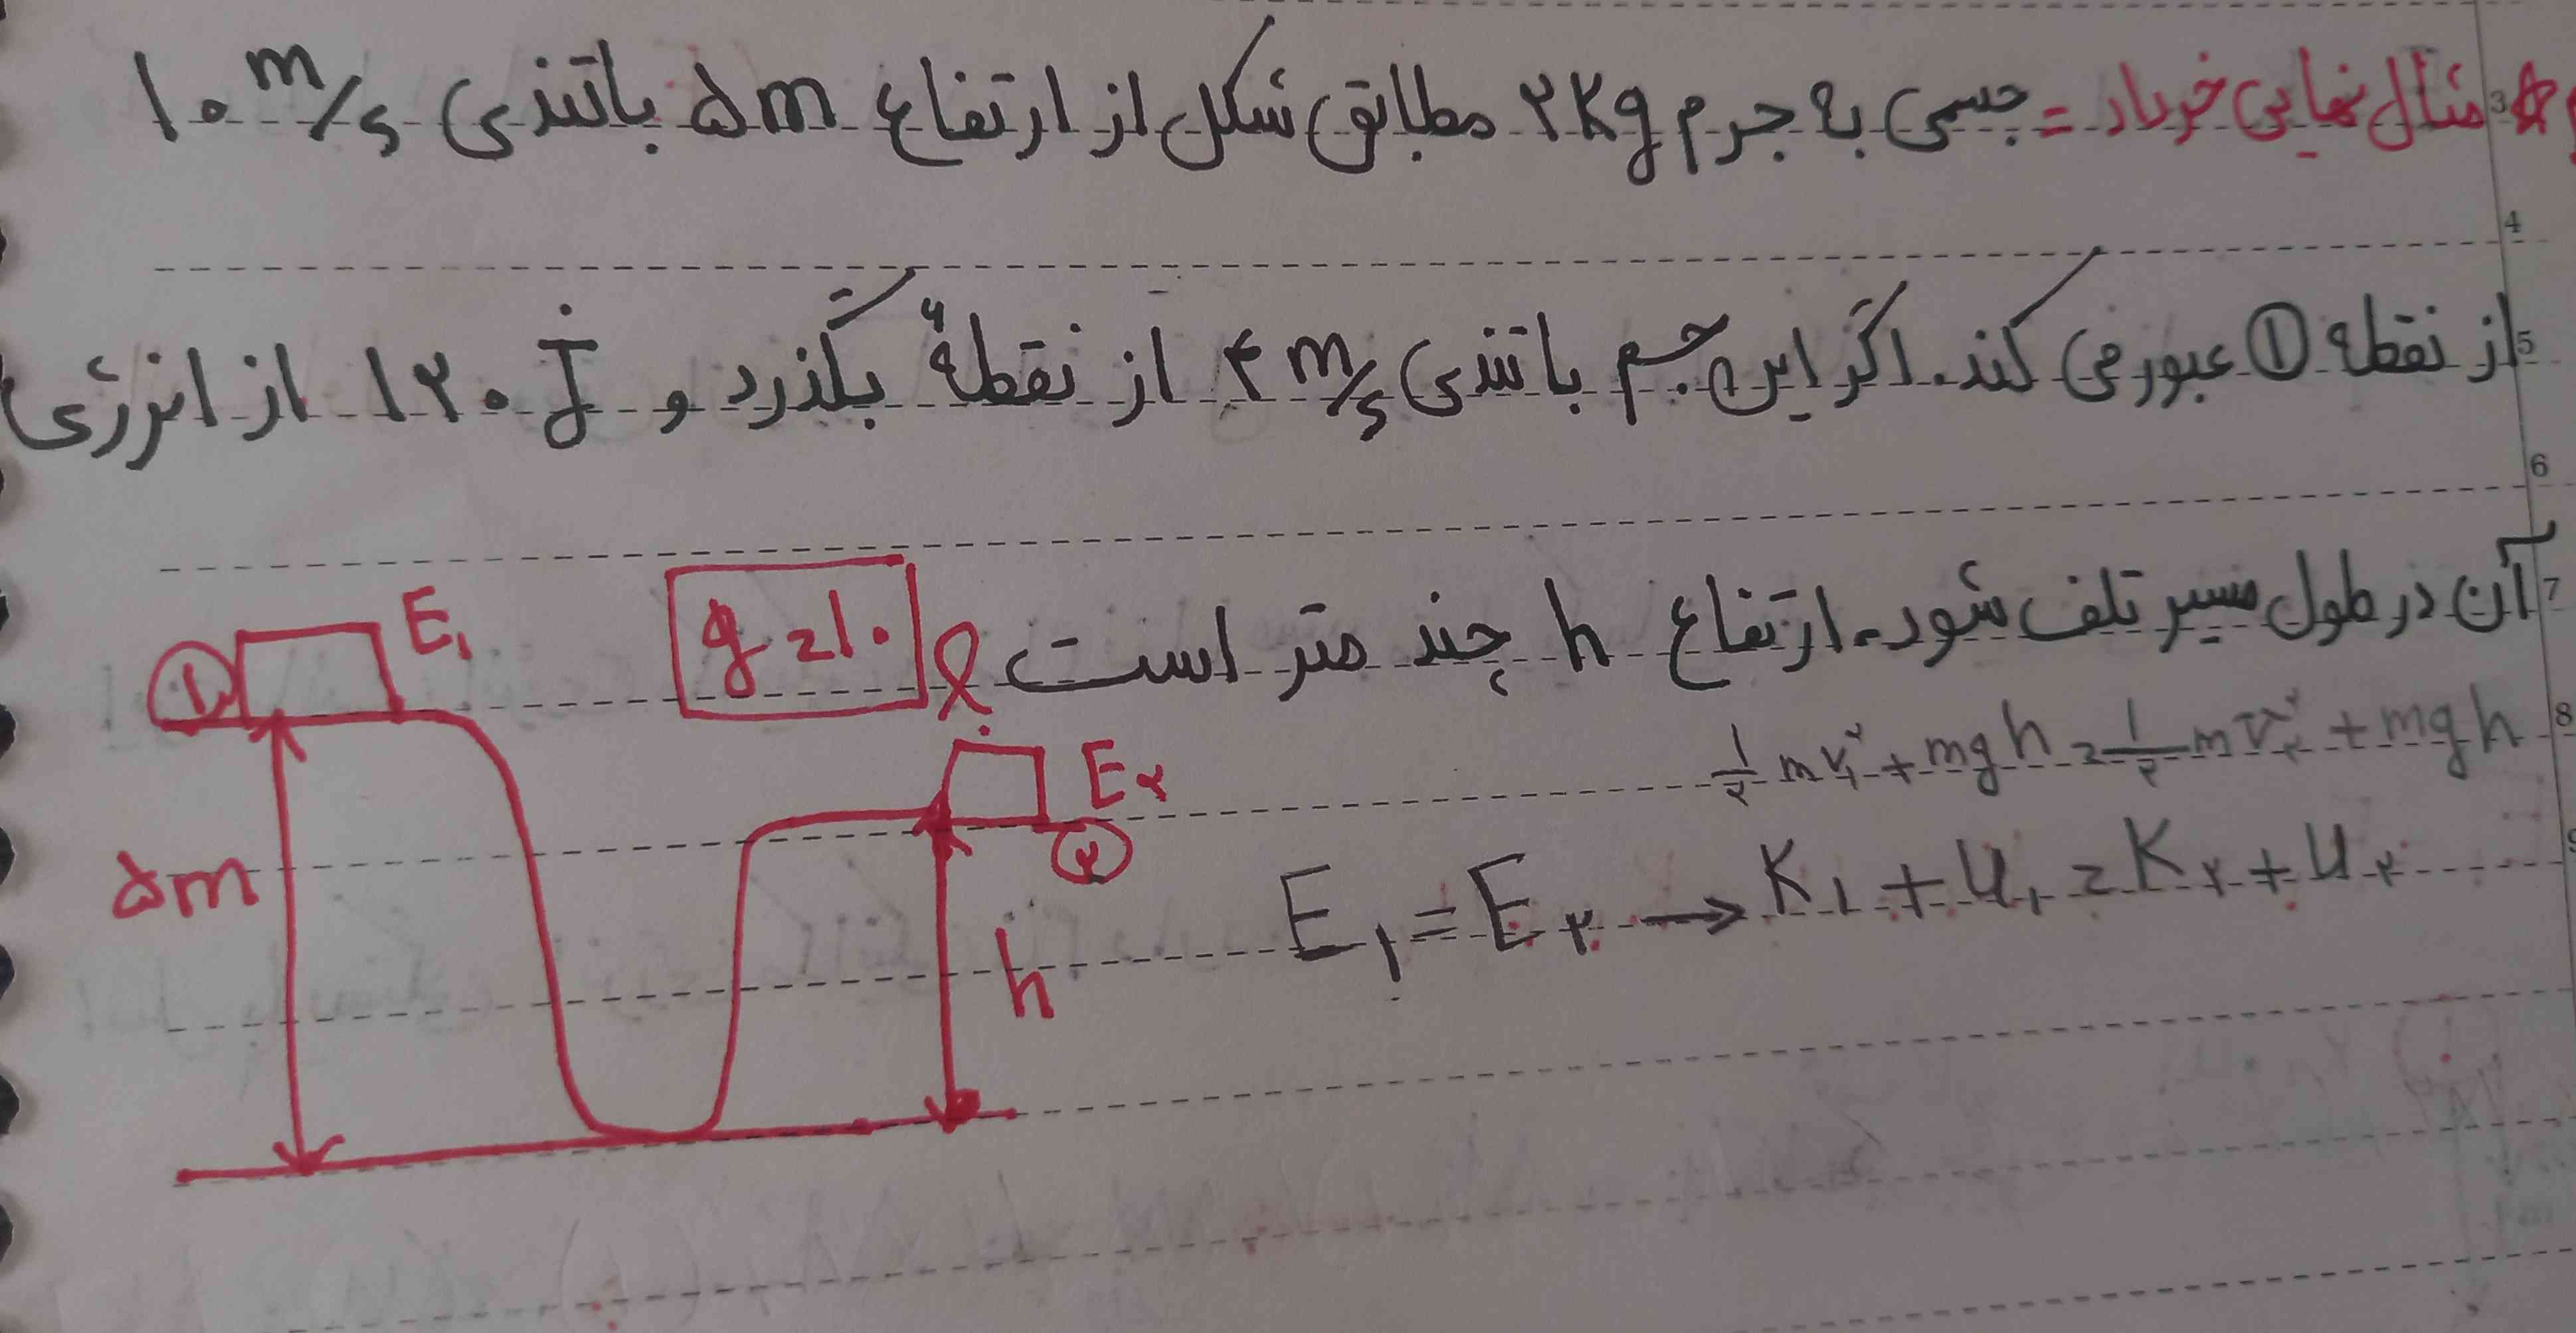 مثال نهایی خرداد = جسمی به جرم ۲Kg مطابق شکل از ارتفاع ۵m باتندی ۱۰ m/s
از نقطه ① عبور می کند. اگر این جسم باتندی ۴ m/s از نقطهٔ ۲ بگذرد و ۱۲۰ J از انرژی
آن در طول مسیر تلف شود. ارتفاع h چند متر است؟
g = ۱۰
½ mv₁² + mgh = ½ mv₂² + mgh
E₁ = E₂ → K₁ + U₁ = K₂ + U₂
① E₁
E₂
②
۵m
h
3
4
5
6
7
8